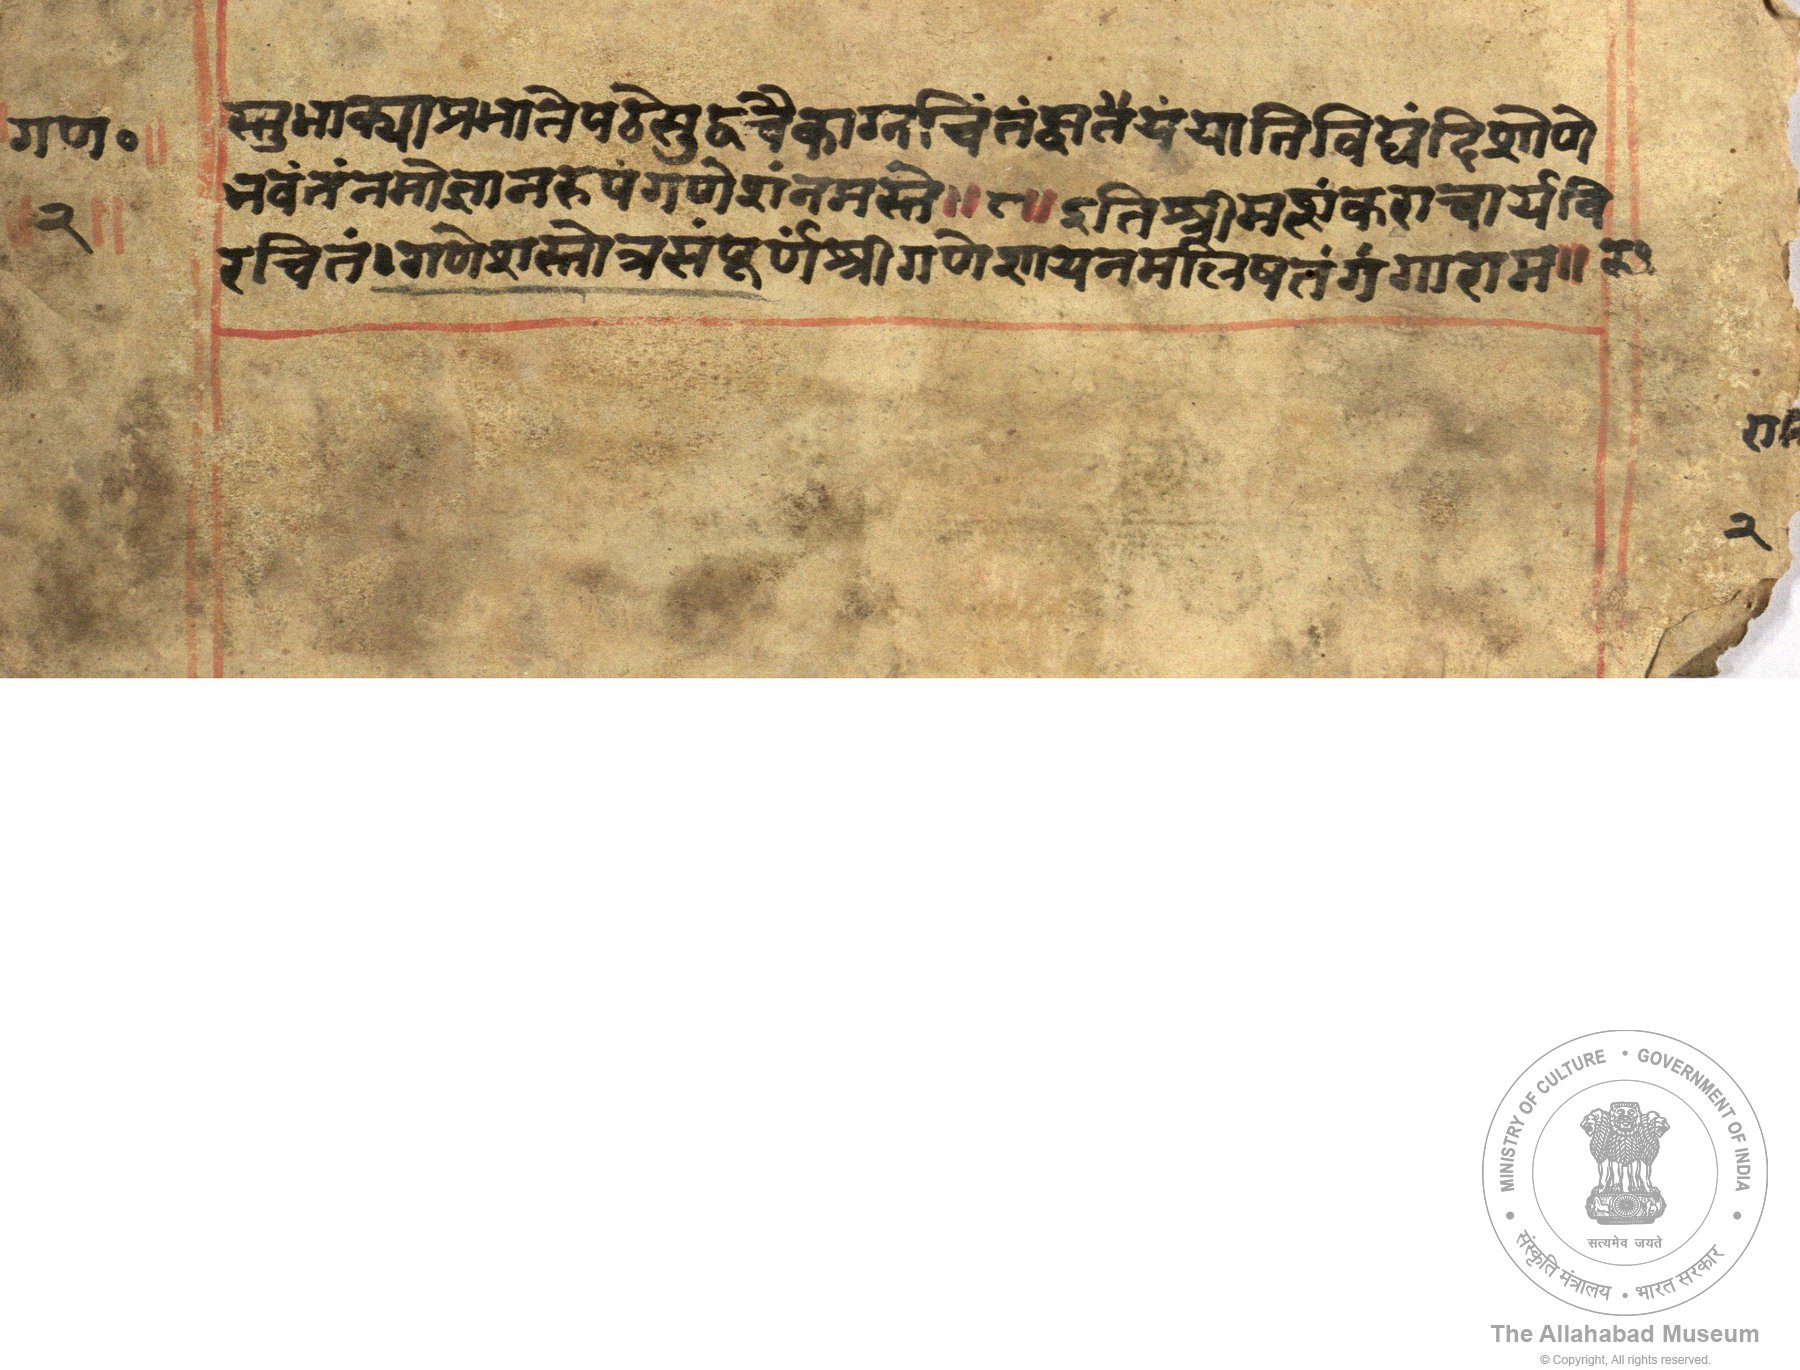 गण॰
२
स्तुभाक्याप्रभातेपठेसुद्धचैकाग्नचिंतंद्वातैयंयातिविघ्नंदिशोणे
भवंतंनमोज्ञानरुपंगणेशंनमस्ते॥८॥इतिश्रीमछंकराचार्यवि
रचितं।गणेशस्तोत्रसंपूर्णंश्रीगणेशायनमलिषतंगंगाराम॥
२
MINISTRY OF CULTURE • GOVERNMENT OF INDIA
सत्यमेव जयते
संस्कृति मंत्रालय • भारत सरकार
The Allahabad Museum
© Copyright, All rights reserved.